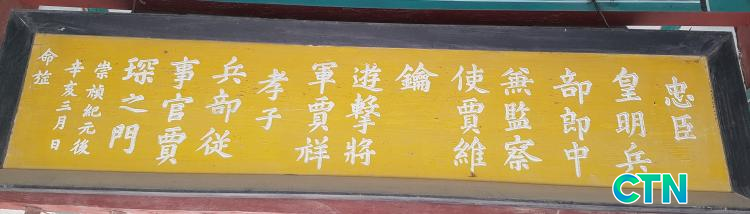 忠臣
皇明兵
部郎中
兼監察
使賈維
鑰
遊擊將
軍賈祥
孝子
兵部從
事官賈
琛之門
崇禎紀元後
辛亥三月日
命旌
CTN